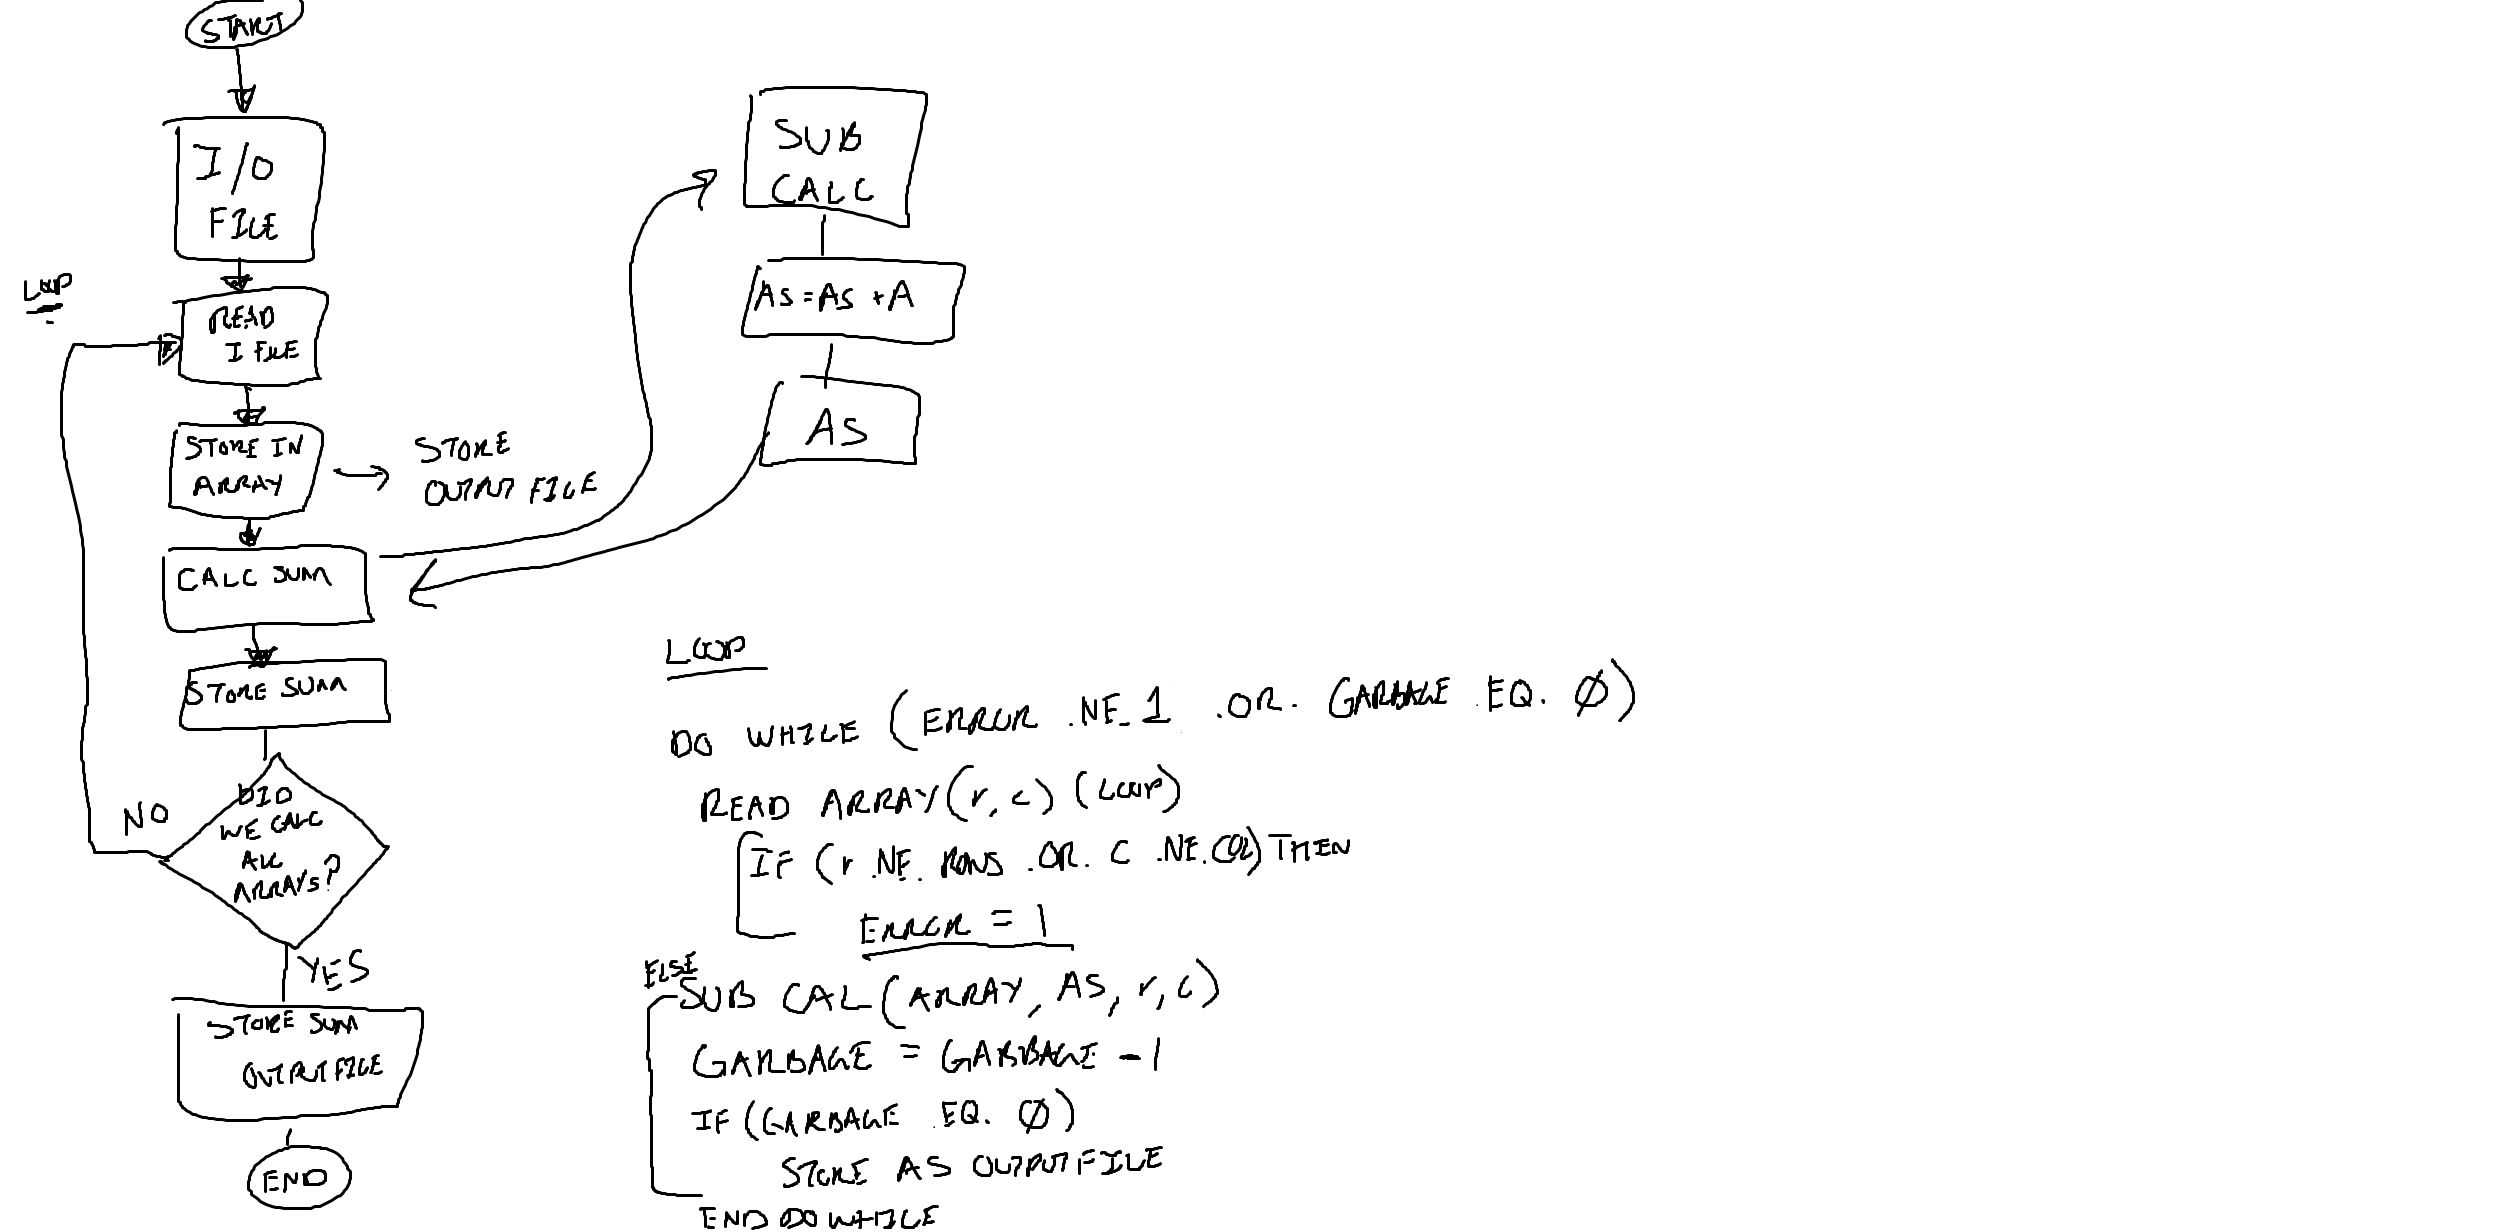 START
I/O
FILE
LOOP
READ
I FILE
STORE IN
ARRAY
STORE
OUTPUT FILE
CALC SUM
STORE SUM
NO
DID
WE CALC
ALL
ARRAYS?
YES
STORE SUM
OUTPUT FILE
END
SUB
CALC
AS = AS + A
AS
LOOP
DO WHILE (ERROR .NE. 1 .OR. GARBAGE .EQ. Ø)
READ ARRAY(r, c) (LOOP)
IF (r .NE. ROWS .OR. C .NE. COL) THEN
ERROR = 1
ELSE
SUB CAL(ARRAY, AS, r, c)
GARBAGE = GARBAGE - 1
IF (GARBAGE .EQ. Ø)
STORE AS OUTPUT FILE
END DO WHILE